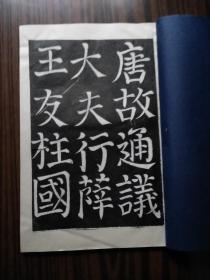 唐故通議
大夫行薛
王友柱國